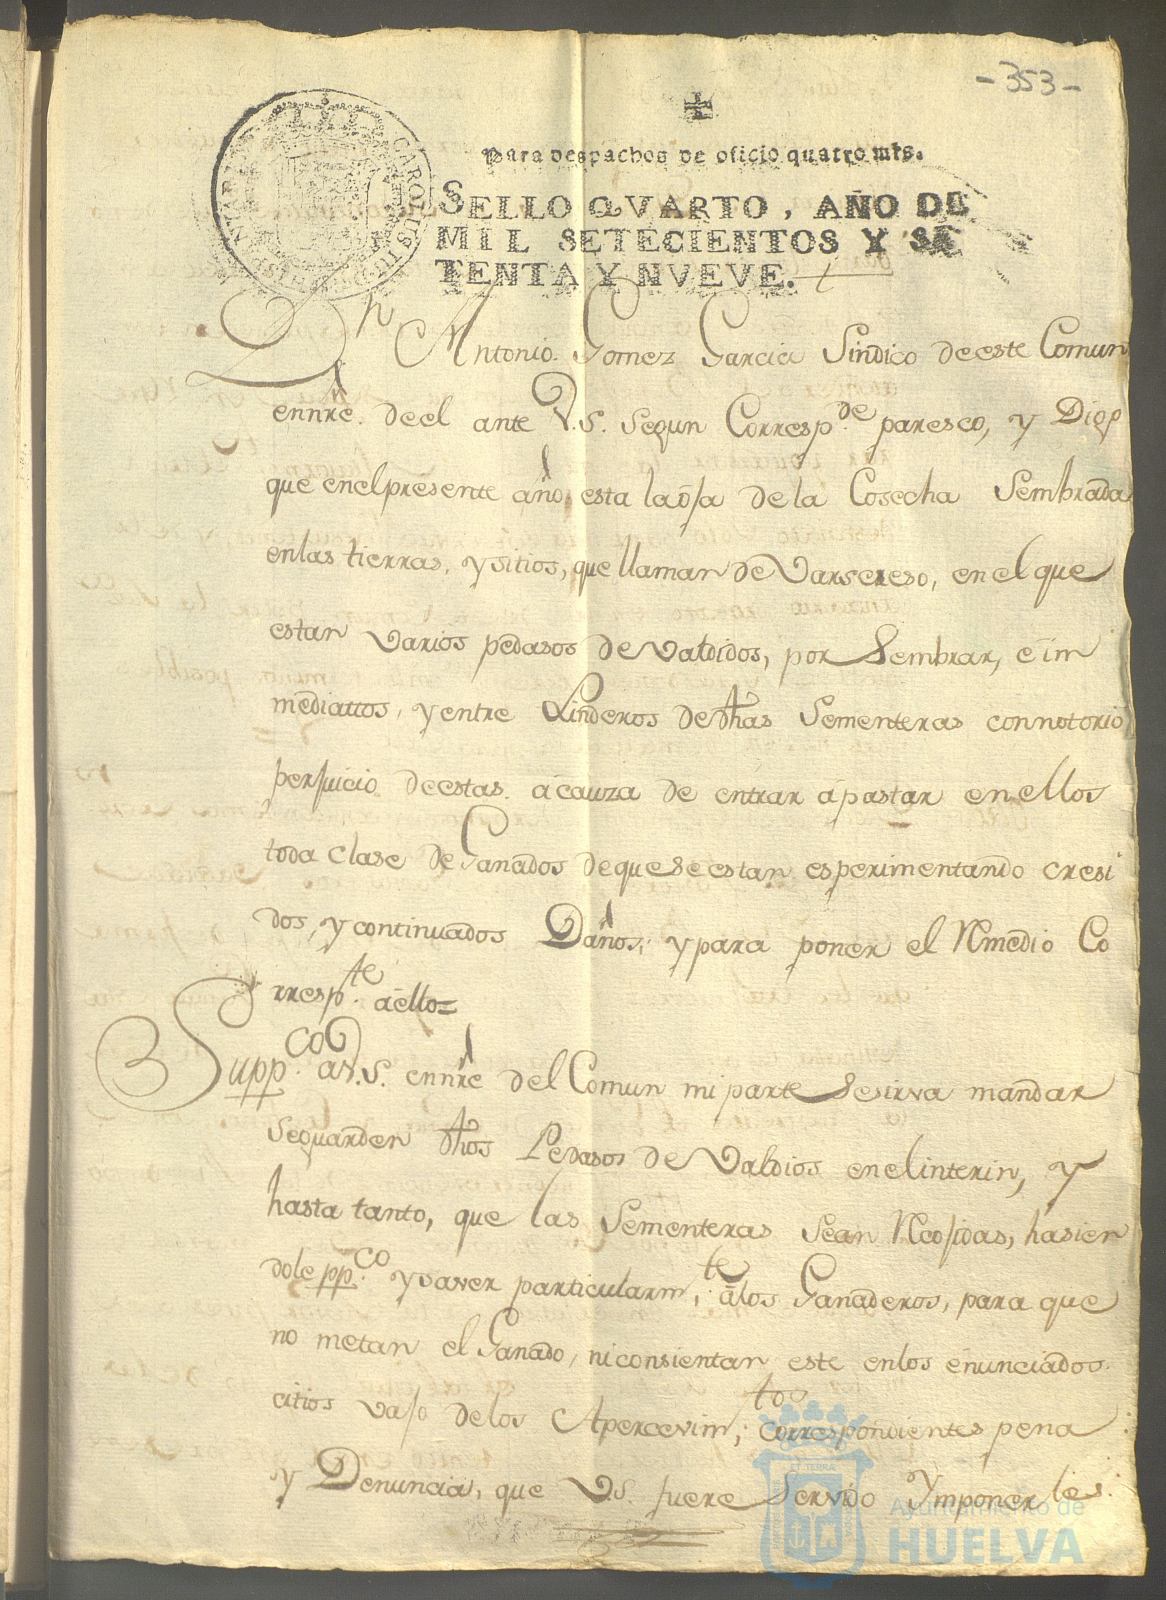 -353-
Para despachos de oficio quatro mrs.
SELLO QVARTO, AÑO DE
MIL SETECIENTOS Y SE
TENTA Y NVEVE.
Dn Antonio Gomez Garcia Sindico de este Comun
en nre. de el ante V.S. segun Correspde. paresco, y Digo
que en el presente año esta la oja de la Cosecha Sembrada
en las tierras, y sitios, que llaman de Varsereso, en el que
estan varios pedasos de Valdidos, por Sembrar, é im
mediattos, y entre Linderos de dhas Sementeras con notorio
perjuicio de estas. á cauza de entrar á pastar en ellos
toda clase de Ganados de que se estan esperimentando cresi
dos, y continuados Daños; y para poner el Rmedio Co
rrespte. á ello=
Suppco. a V.S. en nre del Comun mi parte se sirva mandar
se guarden dhos Pedasos de Valdios en el interin, y
hasta tanto, que las Sementeras sean Rcojidas, hasien
dole ppco. y saver particularmte. á los Ganaderos, para que
no metan el Ganado, ni consientan este en los enunciados
citios vajo de los Apercevimtos. correspondientes pena
y Denuncia, que V.S. fuere servido ymponerles.
Ayuntamiento de
HUELVA